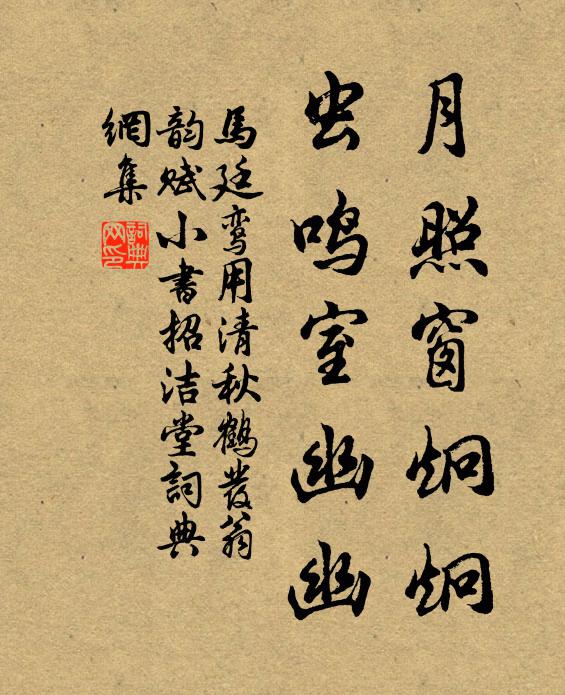 月照窗炯炯
虫鸣室幽幽
馬廷鸾用清秋鶴發翁
韵赋小書招洁堂詞典
網集
詞典
网印